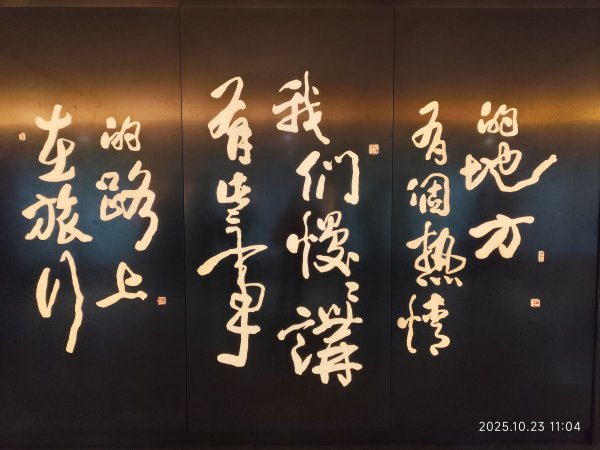 在旅行
的路上
有些事
我们慢慢講
有個热情
的地方
2025.10.23 11:04